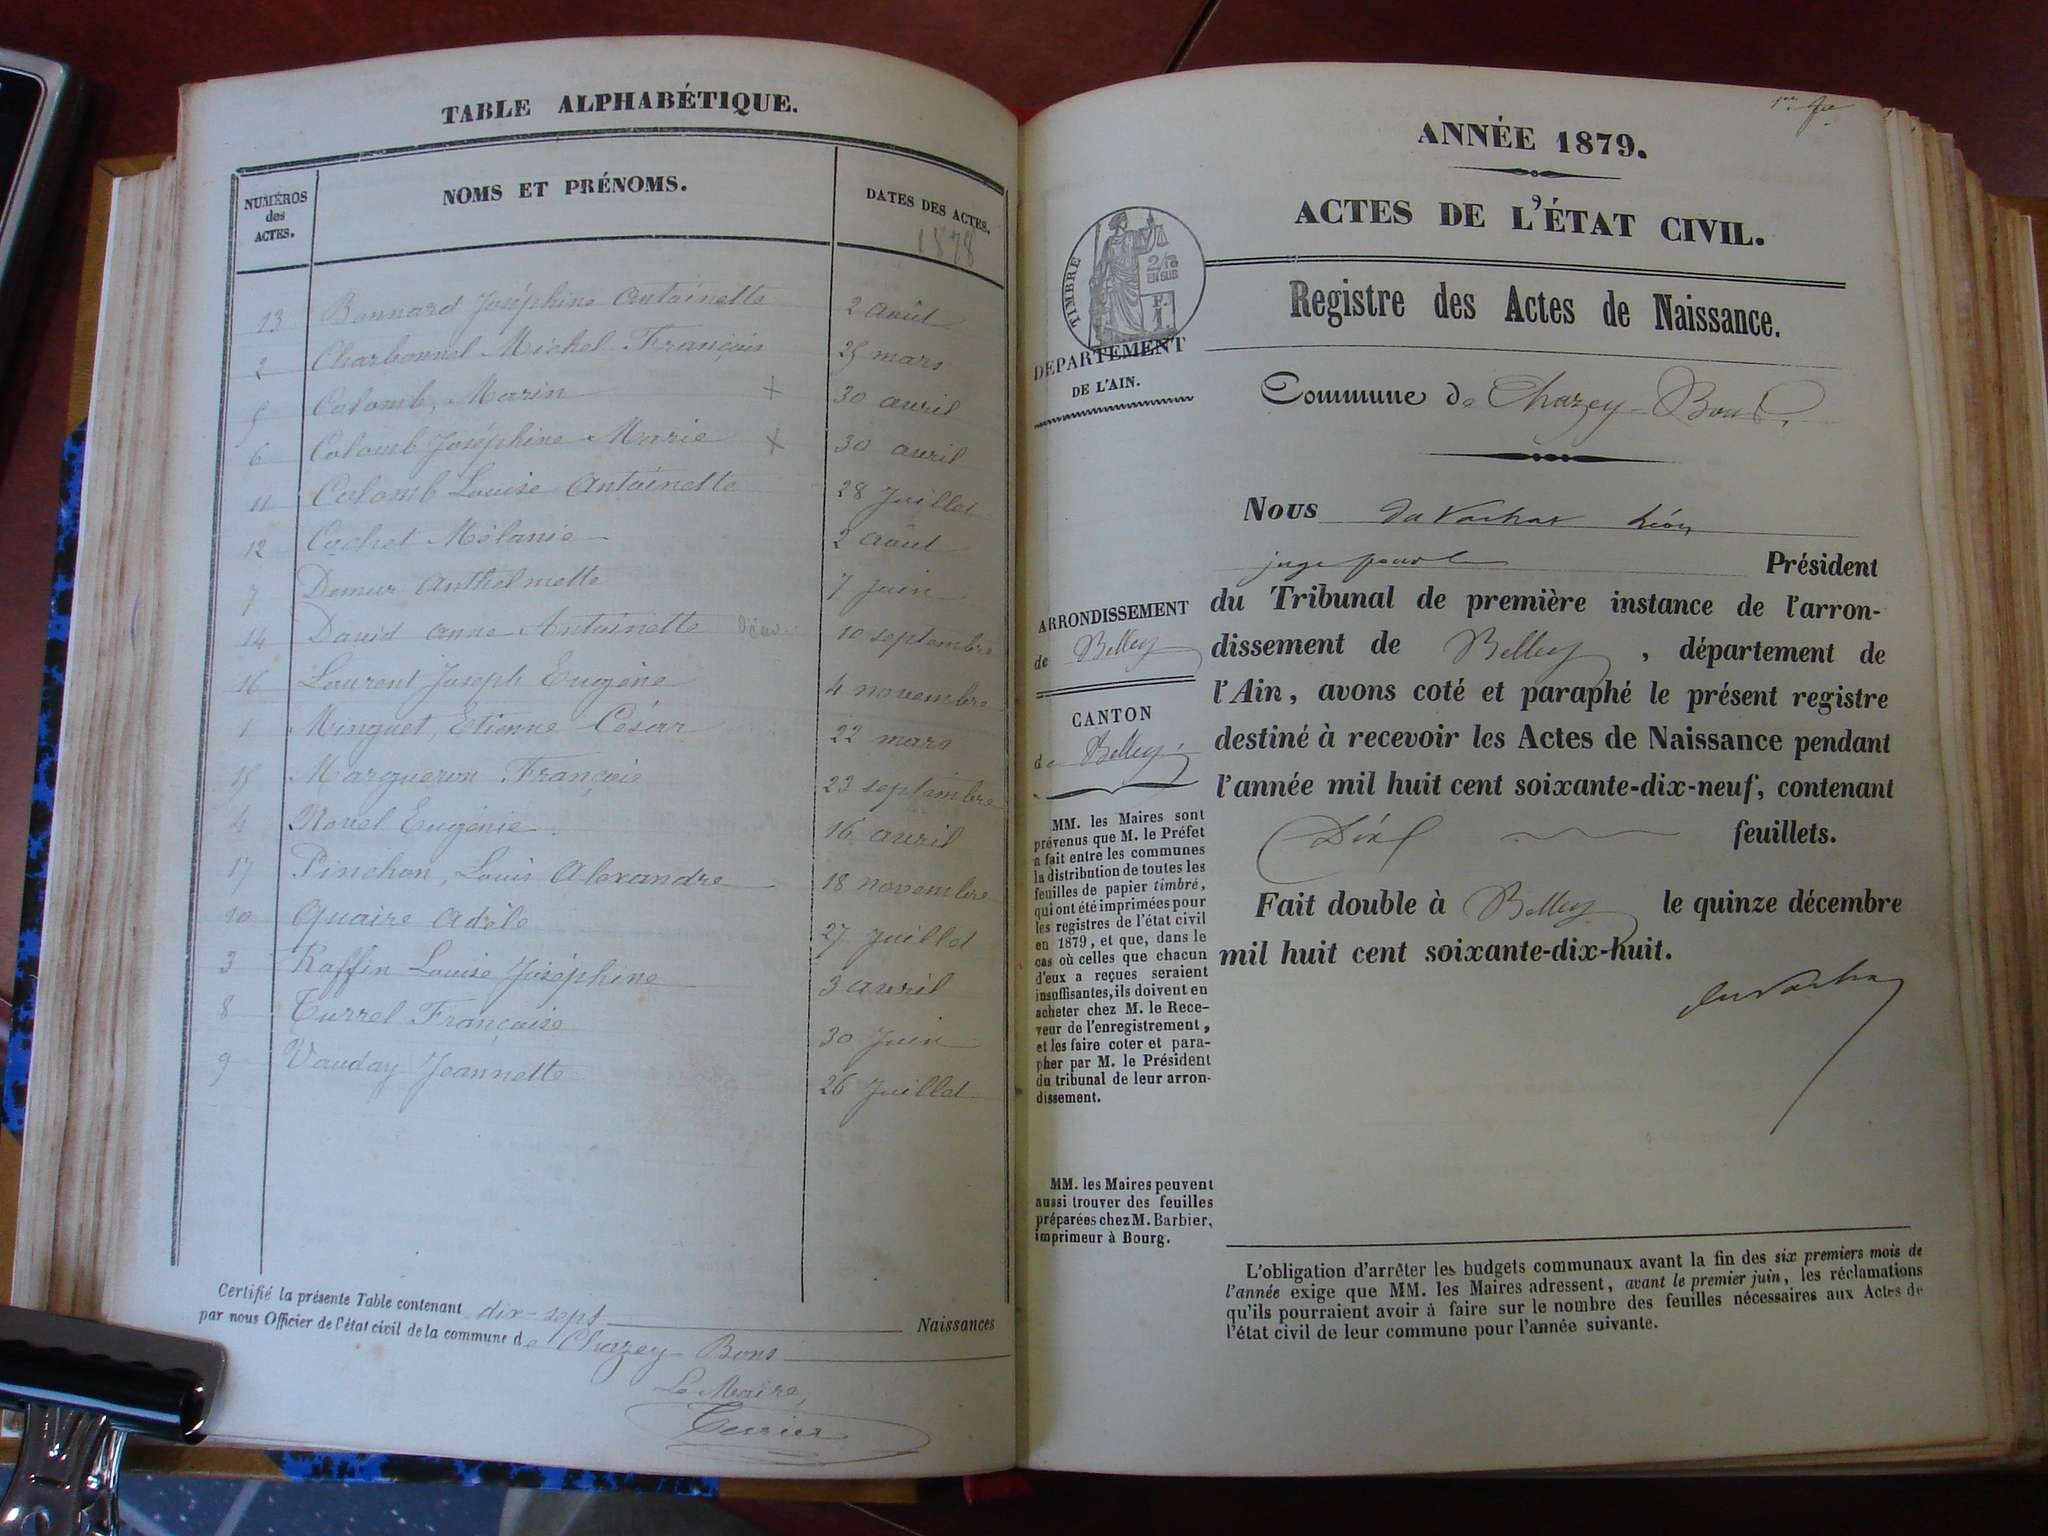 TABLE ALPHABÉTIQUE.
NUMÉROS
des
ACTES.
NOMS ET PRÉNOMS.
DATES DES ACTES.
1878
13 Bonnard Joséphine Antoinette 2 Août
2 Charbonnel Michel François 25 mars
5 Colomb, Marin + 30 avril
6 Colomb Joséphine Marie + 30 avril
11 Colomb Louise Antoinette 28 Juillet
12 Cochet Mélanie 2 Août
7 Demeur Anthelmette 7 Juin
14 David Anne Antoinette 10 septembre
16 Laurent Joseph Eugène 4 novembre
1 Minguet, Etienne César 22 mars
15 Margueron François 23 septembre
4 Novel Eugénie 16 avril
17 Pinchon, Louis Alexandre 18 novembre
10 Quaire Adèle 27 Juillet
3 Raffin Louise Joséphine 3 avril
8 Turrel Françoise 30 Juin
9 Vauday Jeannette 26 Juillet
Certifié la présente Table contenant dix-sept Naissances
par nous Officier de l'état civil de la commune de Chazey-Bons
Le Maire,
ANNÉE 1879.
ACTES DE L'ÉTAT CIVIL.
TIMBRE
2/10
EN SUS
Registre des Actes de Naissance.
DÉPARTEMENT
DE L'AIN.
Commune de Chazey-Bons
Nous du Vachat Léon
juge pour le Président
du Tribunal de première instance de l'arron-
dissement de Belley, département de
l'Ain, avons coté et paraphé le présent registre
destiné à recevoir les Actes de Naissance pendant
l'année mil huit cent soixante-dix-neuf, contenant
Dix feuillets.
Fait double à Belley le quinze décembre
mil huit cent soixante-dix-huit.
du Vachat
ARRONDISSEMENT
de Belley
CANTON
de Belley
MM. les Maires sont
prévenus que M. le Préfet
a fait entre les communes
la distribution de toutes les
feuilles de papier timbré,
qui ont été imprimées pour
les registres de l'état civil
en 1879, et que, dans le
cas où celles que chacun
d'eux a reçues seraient
insuffisantes, ils doivent en
acheter chez M. le Rece-
veur de l'enregistrement,
et les faire coter et para-
pher par M. le Président
du tribunal de leur arron-
dissement.
MM. les Maires peuvent
aussi trouver des feuilles
préparées chez M. Barbier,
imprimeur à Bourg.
L'obligation d'arrêter les budgets communaux avant la fin des six premiers mois de
l'année exige que MM. les Maires adressent, avant le premier juin, les réclamations
qu'ils pourraient avoir à faire sur le nombre des feuilles nécessaires aux Actes de
l'état civil de leur commune pour l'année suivante.